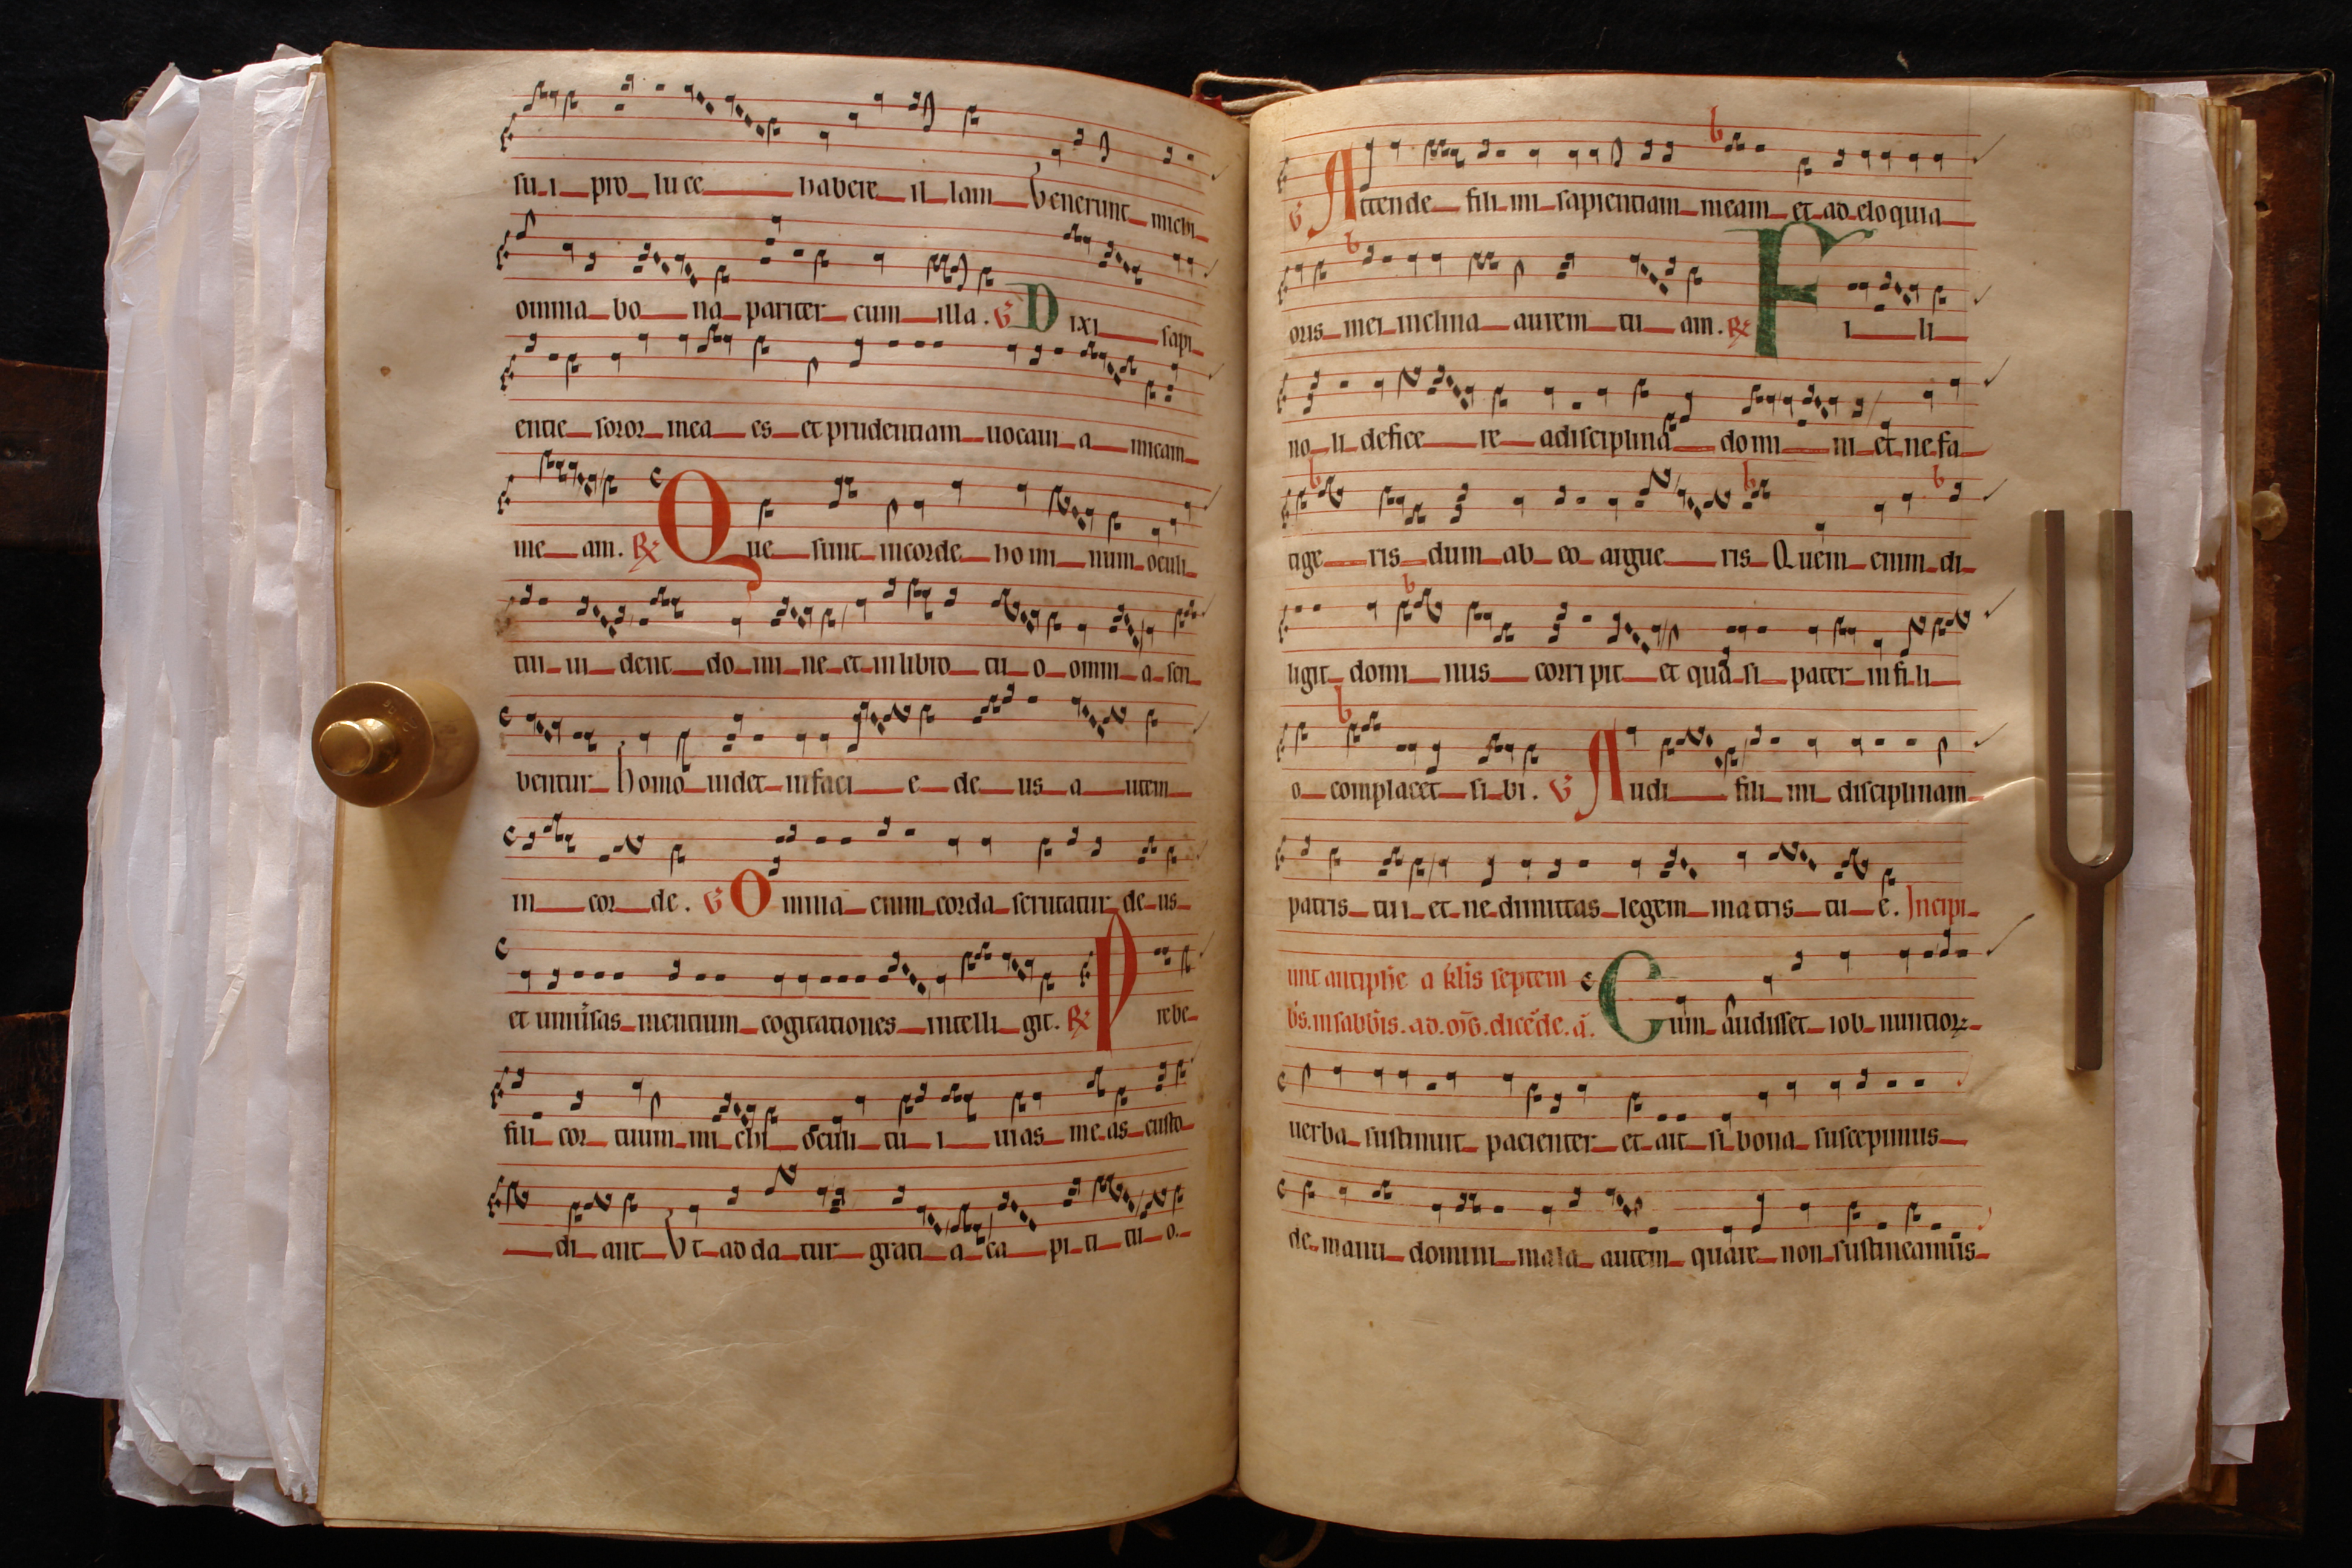 su_i_ pro_ luce_ habere_ il_ lam_ Venerunt_ michi_
omnia_ bo_ na_ pariter_ cum_ illa. V Dixi_ sapi_
entie_ soror_ mea_ es_ et prudentiam_ uocaui_ a_ micam_
me_ am. R Que_ sunt_ incorde_ homi_ num_ oculi_
tui_ ui_ dent_ do_ mi_ ne_ et_ inlibro_ tu_ o_ omni_ a_ scri_
bentur_ Homo_ uidet_ infaci_ e_ de_ us_ a_ utem_
in_ cor_ de. V Omnia_ enim_ corda_ scrutatur_ de_ us_
et uniuersas_ mentium_ cogitationes_ intelli_ git. R Prebe_
fili_ cor_ tuum_ mi_ chi_ oculi_ tu_ i_ uias_ me_as_ custo_
_ di_ ant_ Vt_ adda_ tur_ grati_ a_ ca_ pi_ ti_ tu_ o_
V Attende_ fili_ mi_ sapientiam_ meam_ et_ ad_ eloquia_
oris_ mei_ inclina_ aurem_ tu_ am. R Fi_ li_
no_ li_ defice_ re_ adisciplina_ domi_ ni_ et_ ne_ fa_
tige_ ris_ dum_ ab_ eo_ argue_ ris_ Quem_ enim_ di_
ligit_ domi_ nus_ corripit_ et qua_si_ pater_ infi_li_
o_ complacet_ si_bi. V Audi_ fili_ mi_ disciplinam_
patris_ tui_ et_ ne_ dimittas_ legem_ matris_ tu_ e. Incipi_
unt antiphe a klis septem
bs. in sabbis. ad. Cum_ audisset_ iob_ nuntior_
uerba_ sustinuit_ pacienter_ et_ ait_ si_ bona_ suscepimus_
de_ manu_ domini_ mala_ autem_ quare_ non_ sustineamus_